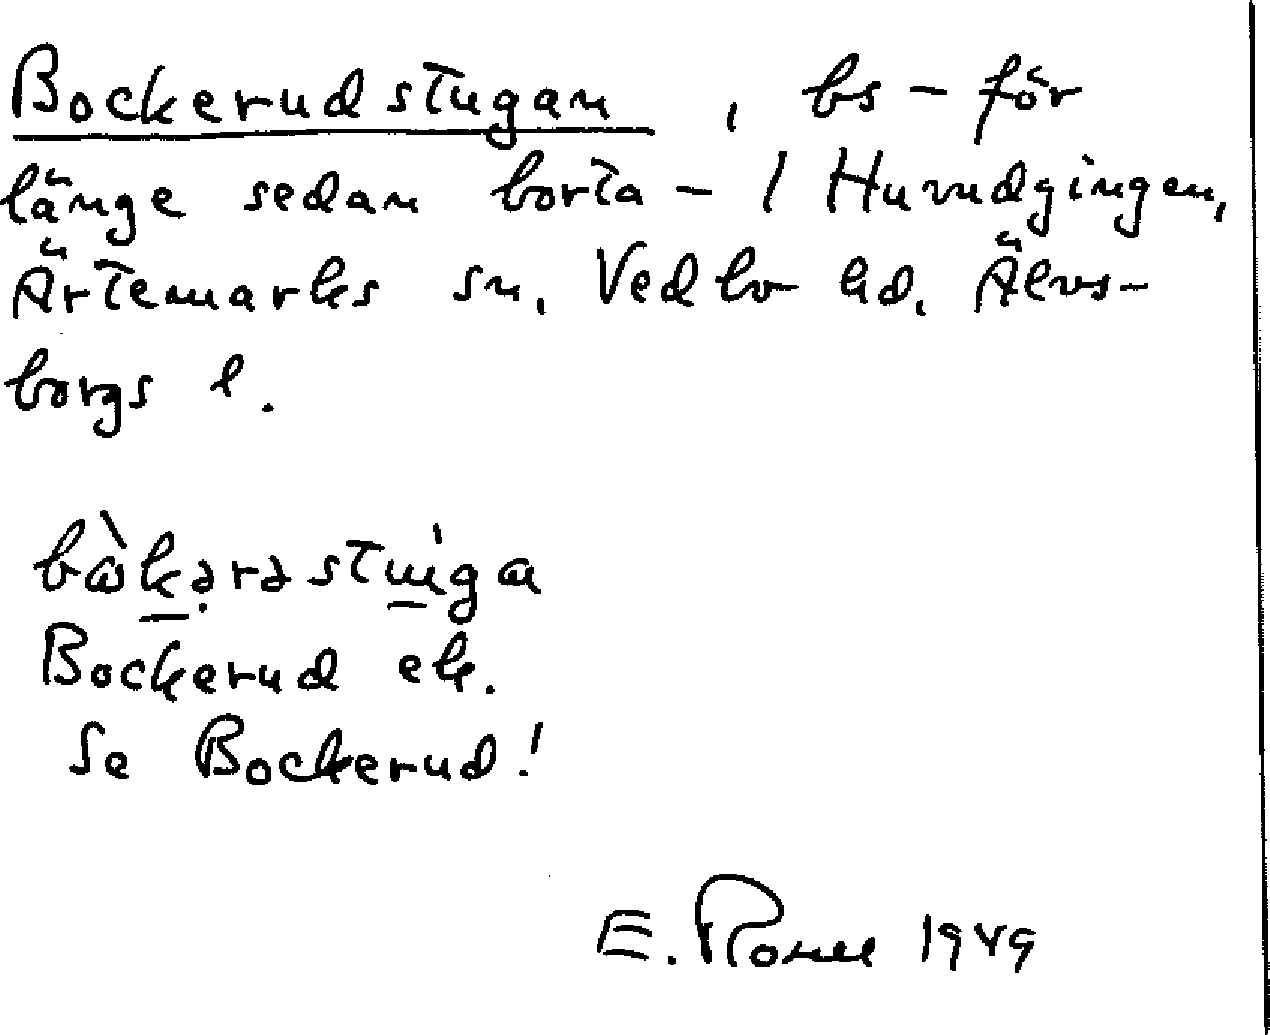 Bockerudstugan, bs - för
länge sedan borta - / Huvudgingen,
Ärtemarks sn, Vedbo hd. Älvs-
borgs l.
Bockerud ek.
Se Bockerud!
E. 1949